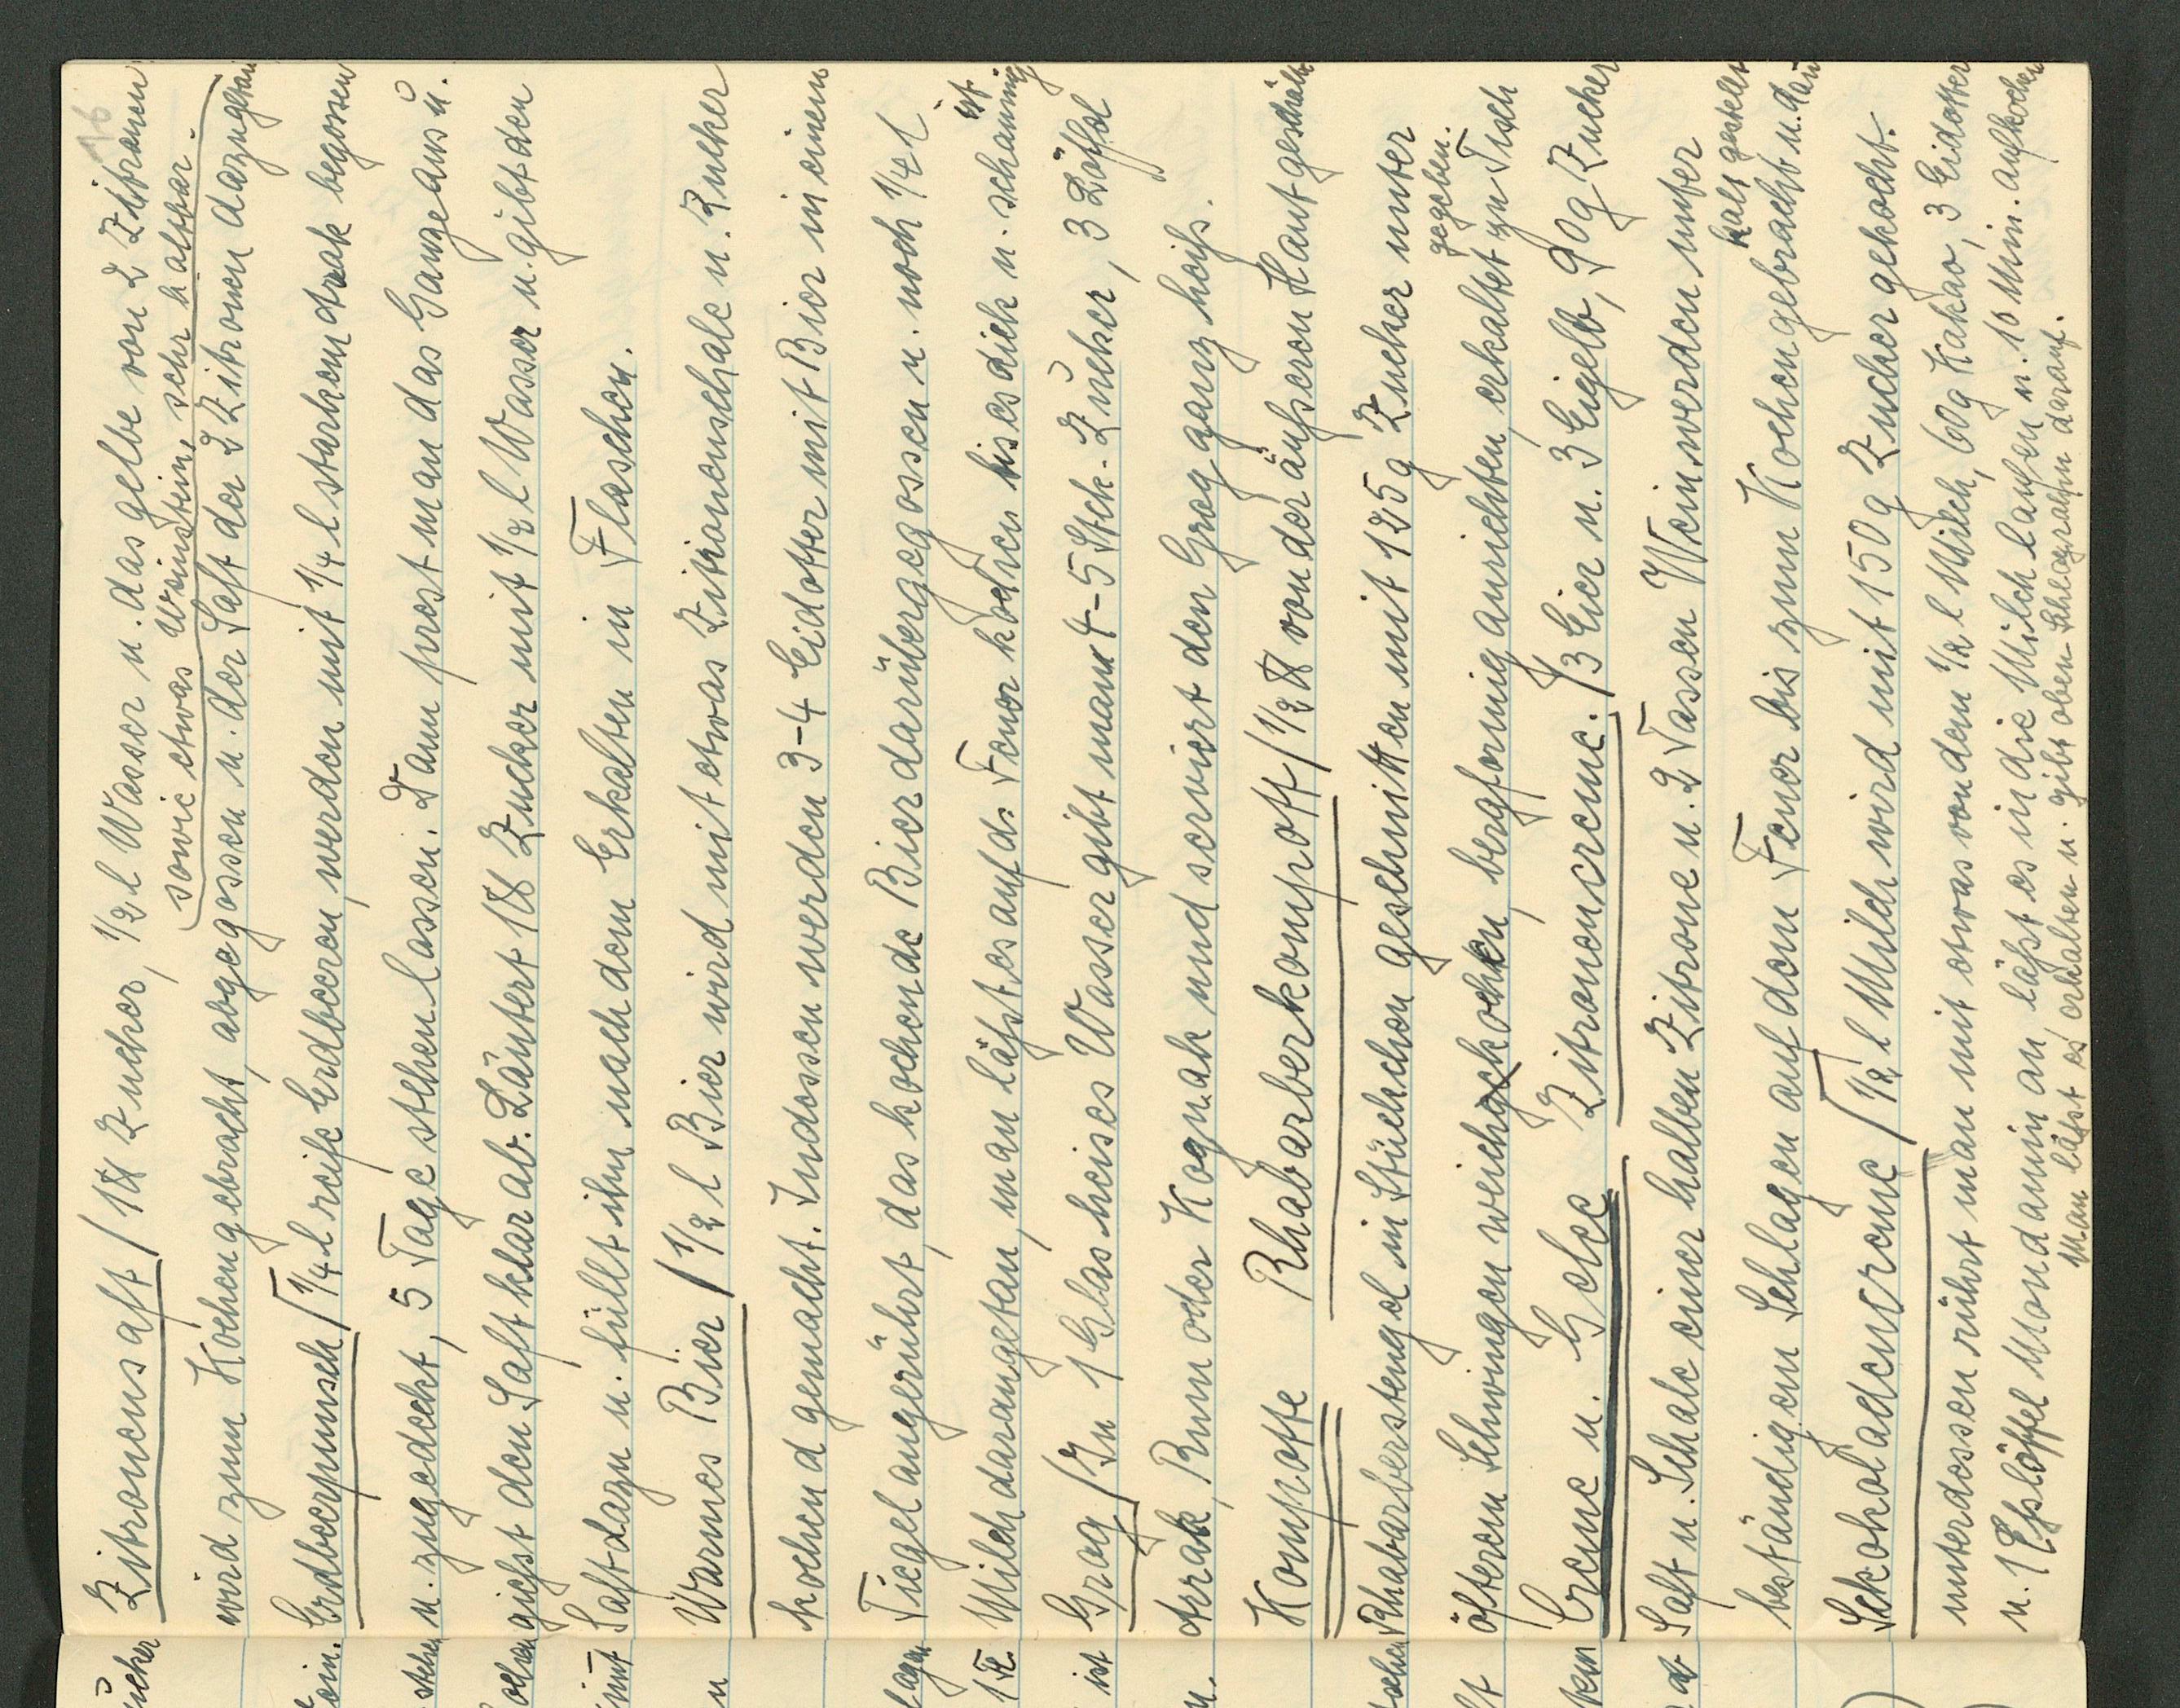 16
Zitronensaft / 1 ℔ Zucker, 1/2 l Wasser u. das gelbe von 2 Zitronen
sowie etwas Weinstein, sehr haltbar.
wird zum Kochen gebracht, abgegossen u. der Saft der 2 Zitronen dazugetan
Erdbeerpunsch / 1/4 l reife Erdbeeren, werden mit 1/4 l starkem Arak begossen
u. zugedeckt, 5 Tage stehen lassen. Dann prest man das Ganze aus u.
giesst den Saft klar ab. Läutert 1 ℔ Zucker mit 1/2 l Wasser u. gibt den
Saft dazu u. füllt ihn nach dem Erkalten in Flaschen.
Warmes Bier / 1 1/2 l Bier wird mit etwas Zitronenschale u. Zucker
kochend gemacht. Indessen werden 3-4 Eidotter mit Bier in einem
Tiegel angerührt, das kochende Bier darübergegossen u. noch 1/4 l
Milch darangetan, man läßt es auf d. Feuer kochen bis es dick u. schaumig
ist.
Grog / In 1 Glas heises Wasser gibt man 4-5 Stck. Zucker, 3 Löffel
Arrak, Rum oder Kognak und serviert den Grog ganz heiß.
Kompotte Rhabarberkompott / 1/2 ℔ von der äußeren Haut geschält
Rhabarberstengel in Stückchen geschnitten mit 125 g Zucker unter
öfterem Schwingen weich kochen, bergformig anrichten, erkaltet zu Tisch
gegeben.
Creme u. Gelee Zitronencreme. / 3 Eier u. 3 Eigelb, 90 g Zucker
Saft u. Schale einer halben Zitrone u. 2 Tassen Wein werden unter
beständigem Schlagen auf dem Feuer bis zum Kochen gebracht u. dan
kalt gestellt
Schokoladencreme / 1/2 l Milch wird mit 150 g Zucker gekocht.
unterdessen rührt man mit etwas von dem 1/2 l Milch, 60 g Kakao, 3 Eidotter
u. 1 Eßlöffel Mondamin an, läßt es in die Milch laufen u. 10 Min. aufkochen
Man läßt es erkalten u. gibt oben Schlagrahm darauf.